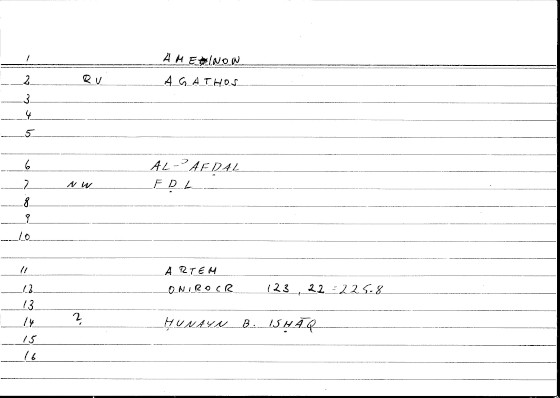 1 AMEINON
2 RU AGATHOS
3
4
5
6 AL-ʾAFḌAL
7 NW FḌL
8
9
10
11 ARTEM
12 ONIROCR 123, 22 = 225.8
13
14 ? ḤUNAYN B. ISḤĀQ
15
16